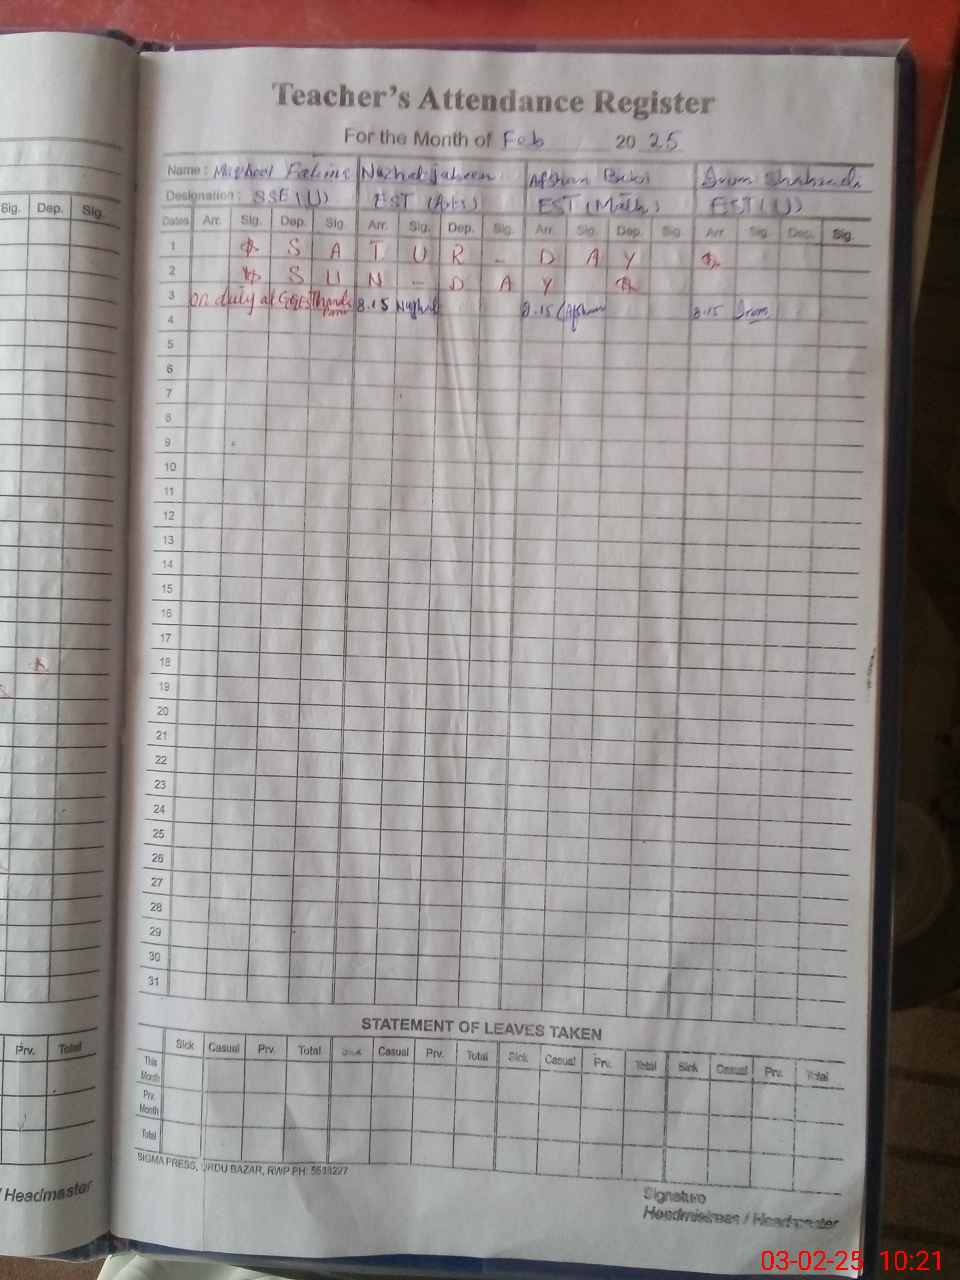 Teacher's Attendance Register
For the Month of Feb 20 25
Name : Fatima Nuzhat Jabeen Afshan Irum Shahzadi
Designation : SSE (U) EST (Arts) EST (Math) EST (U)
Sig. Dep. Sig.
Dates Arr. Sig. Dep. Sig. Arr. Sig. Dep. Sig. Arr. Sig. Dep. Sig. Arr. Sig. Dep. Sig.
1 S A T U R - D A Y
2 S U N - D A Y
3 on duty at 8.15 Nuzhat 8.15 Afshan 8.15 Irum
4
5
6
7
8
9
10
11
12
13
14
15
16
17
18
19
20
21
22
23
24
25
26
27
28
29
30
31
STATEMENT OF LEAVES TAKEN
Prv. Total
Sick Casual Prv. Total Sick Casual Prv. Total Sick Casual Prv. Total Sick Casual Prv. Total
This Month
Prv. Month
Total
SIGMA PRESS, URDU BAZAR, RWP. PH:
/ Headmaster
Signature
Headmistress / Headmaster
03-02-25 10:21